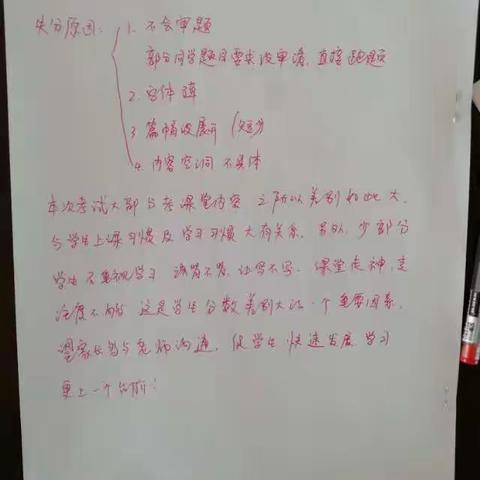 失分原因: 1. 不会审题
部分同学题目要求没审清, 直接跑题
2. 字体 
3 篇幅没展开 (欠分)
4. 内容空洞 不具体
本次考试大部分考课堂内容 之所以差别如此大,
与学生上课习惯及学习习惯大有关系. 另外, 少部分
学生不重视学习 该背不背, 让写不写. 课堂走神, 专
注度不够 这是学生分数差别大的一个重要因素.
望家长多与老师沟通, 促学生快速发展 学习
更上一个台阶!